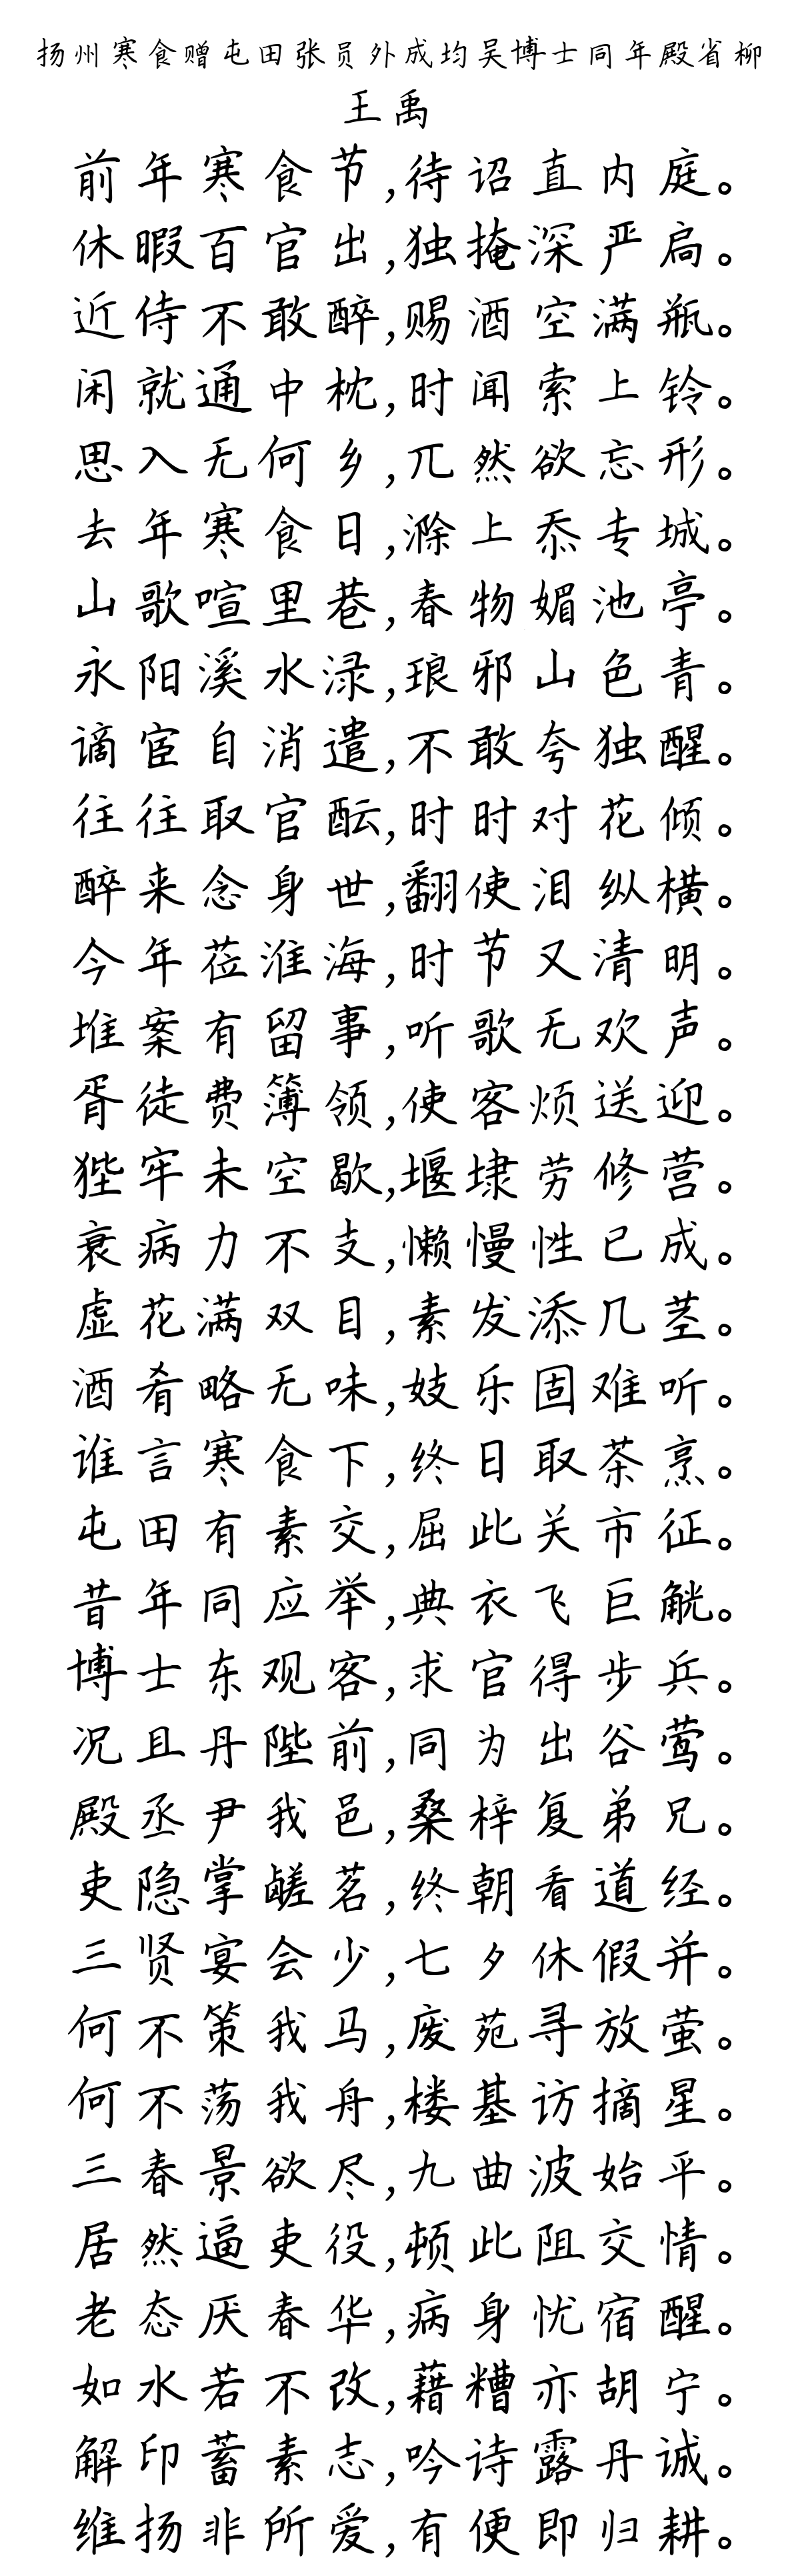 扬州寒食赠屯田张员外成均吴博士同年殿省柳
王禹
前年寒食节,待诏直内庭。
休暇百官出,独掩深严扃。
近侍不敢醉,赐酒空满瓶。
闲就通中枕,时闻索上铃。
思入无何乡,兀然欲忘形。
去年寒食日,滁上忝专城。
山歌喧里巷,春物媚池亭。
永阳溪水渌,琅邪山色青。
谪宦自消遣,不敢夸独醒。
往往取官酝,时时对花倾。
醉来念身世,翻使泪纵横。
今年莅淮海,时节又清明。
堆案有留事,听歌无欢声。
胥徒费簿领,使客烦送迎。
狴牢未空歇,堰埭劳修营。
衰病力不支,懒慢性已成。
虚花满双目,素发添几茎。
酒肴略无味,妓乐固难听。
谁言寒食下,终日取茶烹。
屯田有素交,屈此关市征。
昔年同应举,典衣飞巨觥。
博士东观客,求官得步兵。
况且丹陛前,同为出谷莺。
殿丞尹我邑,桑梓复弟兄。
吏隐掌鹾茗,终朝看道经。
三贤宴会少,七夕休假并。
何不策我马,废苑寻放萤。
何不荡我舟,楼基访摘星。
三春景欲尽,九曲波始平。
居然逼吏役,顿此阻交情。
老态厌春华,病身忧宿醒。
如水若不改,藉糟亦胡宁。
解印蓄素志,吟诗露丹诚。
维扬非所爱,有便即归耕。